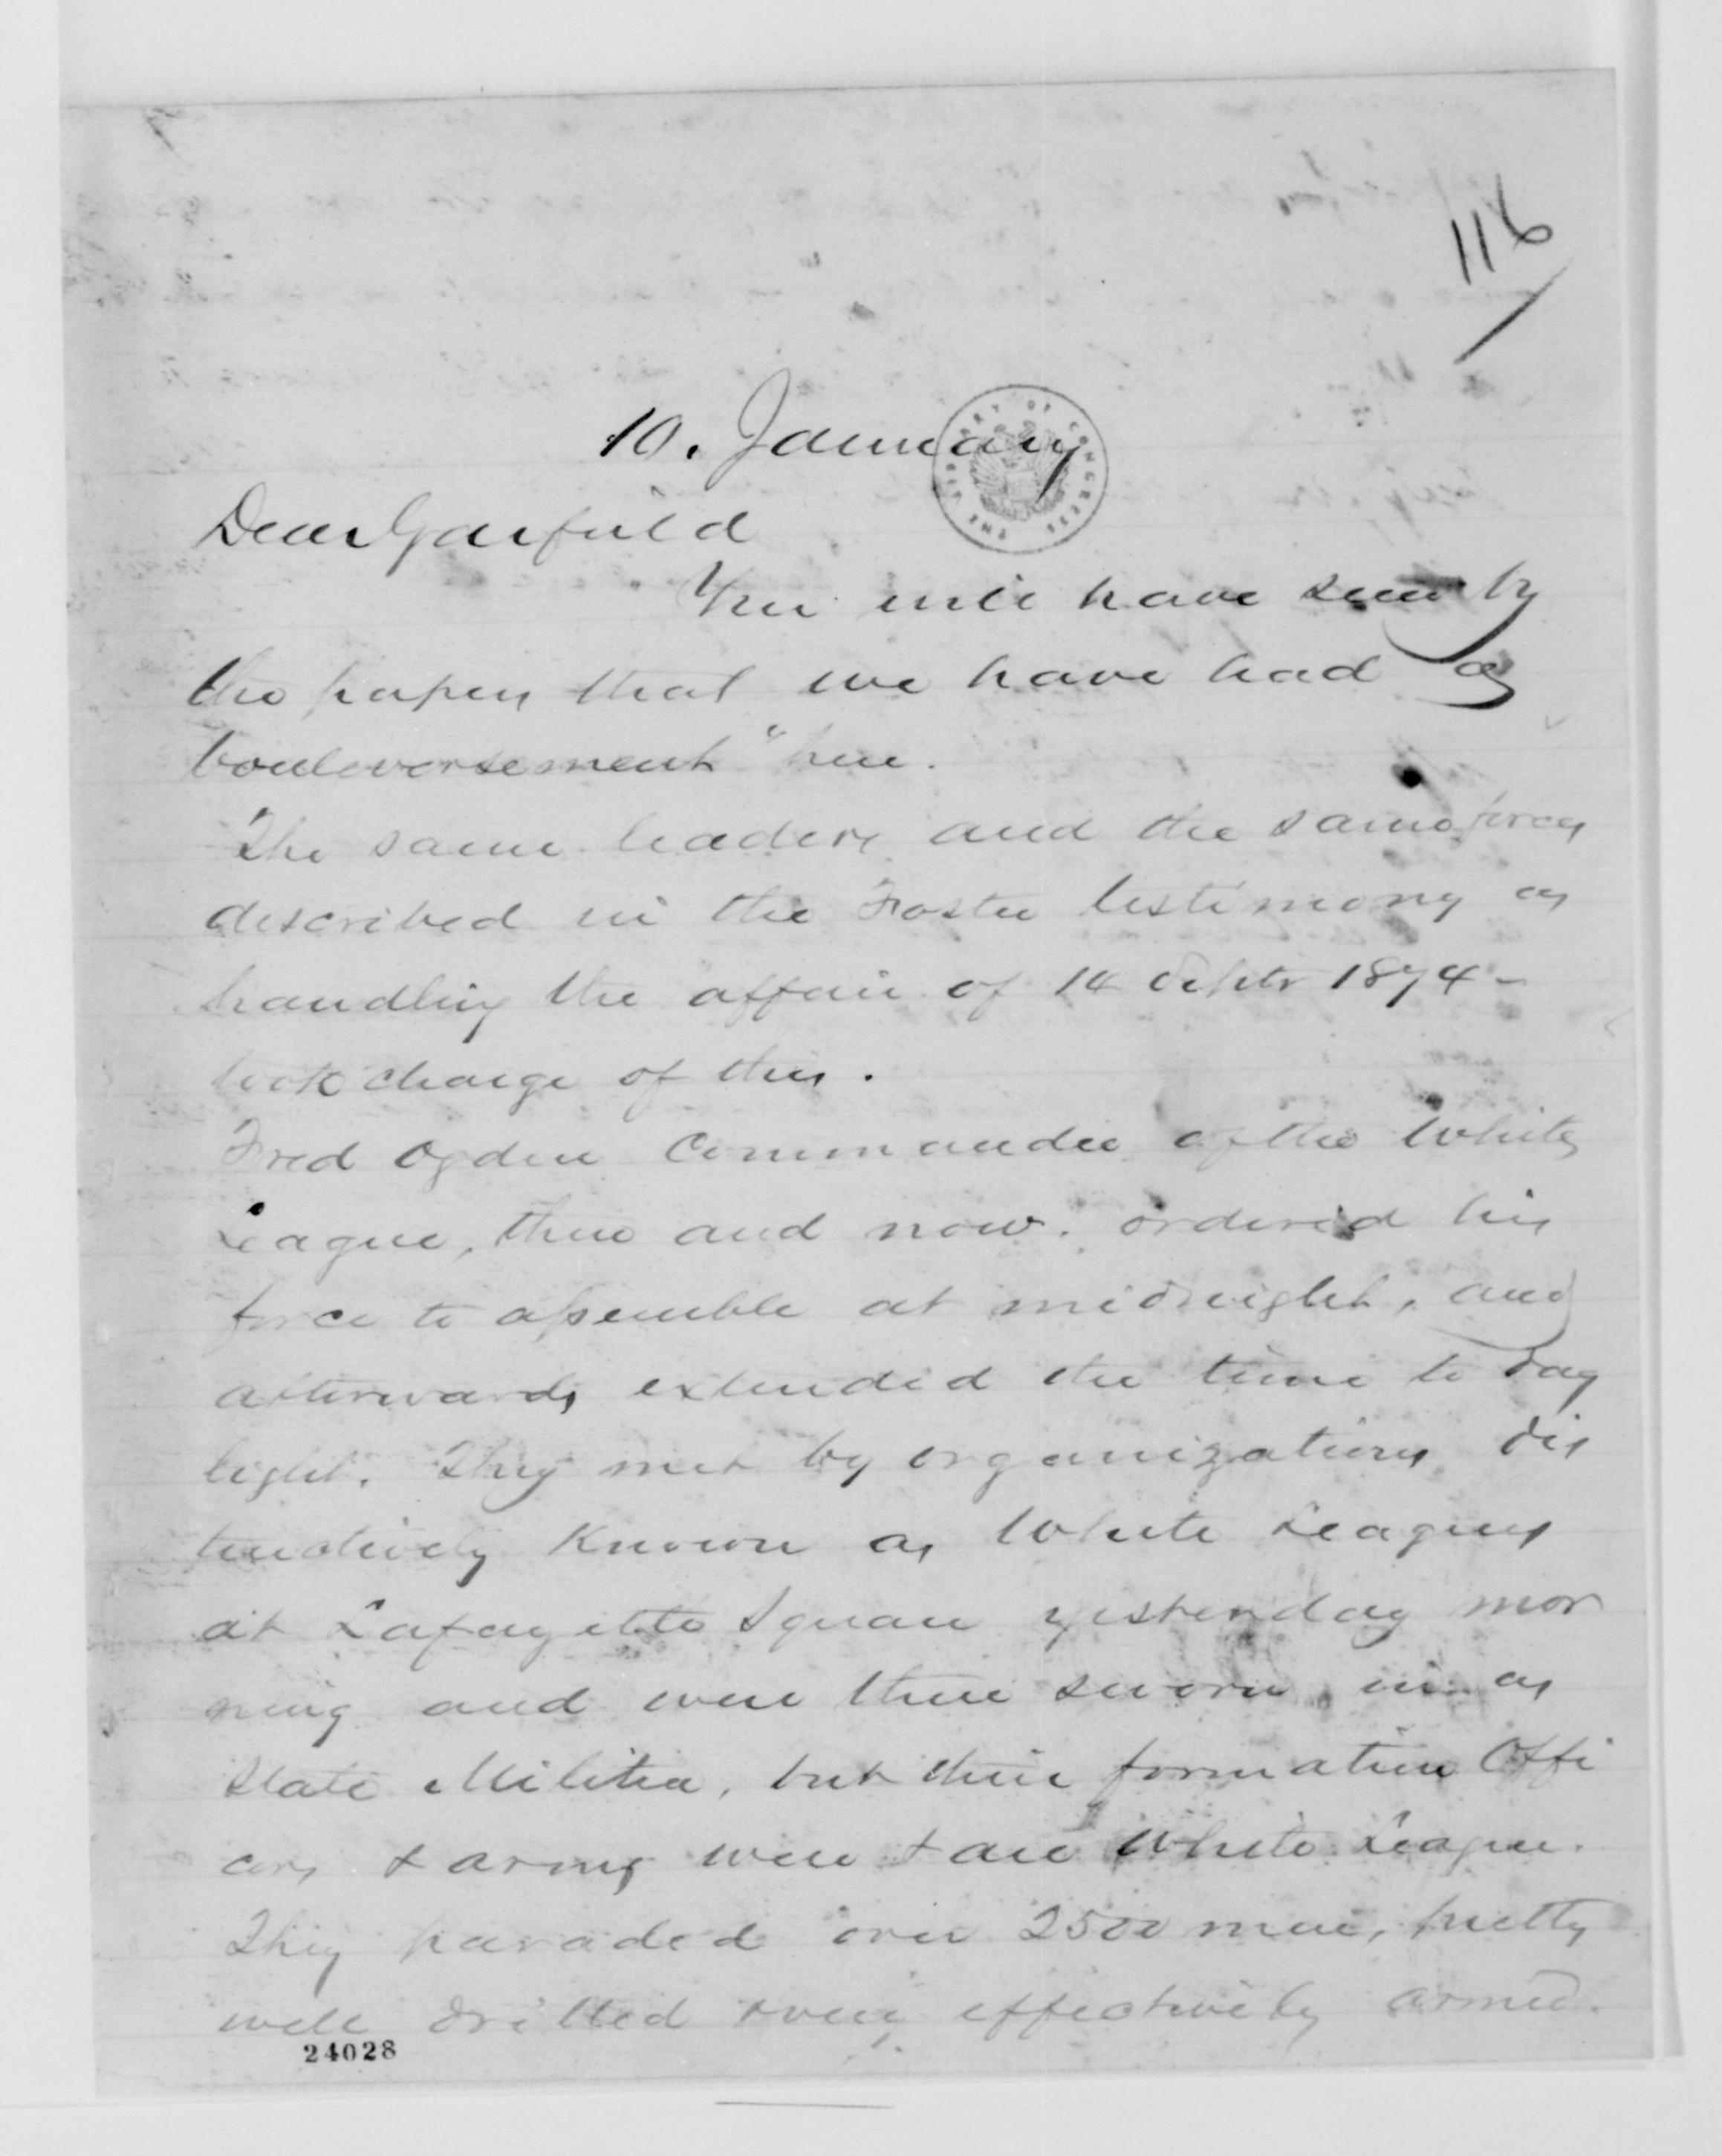 116
10. January
THE LIBRARY OF CONGRESS
Dear Garfield
You will have seen by
the papers that we have had a
bouleversement" here.
The same leaders and the same forces
described in the Foster testimony as
handling the affair of 14 Septr 1874-
took charge of this.
Fred Ogden Commander of the White
League, then and now, ordered his
force to assemble at midnight, and
afterwards extended the time to day
light. They met by organizations dis
tinctively known as White Leagues
at Lafayette Square yesterday mor
ning and were there sworn in as
State Militia, but their formation Offi
cers & arms were & are White League.
They paraded over 2500 men, pretty
well drilled & very effectively armed.
24028